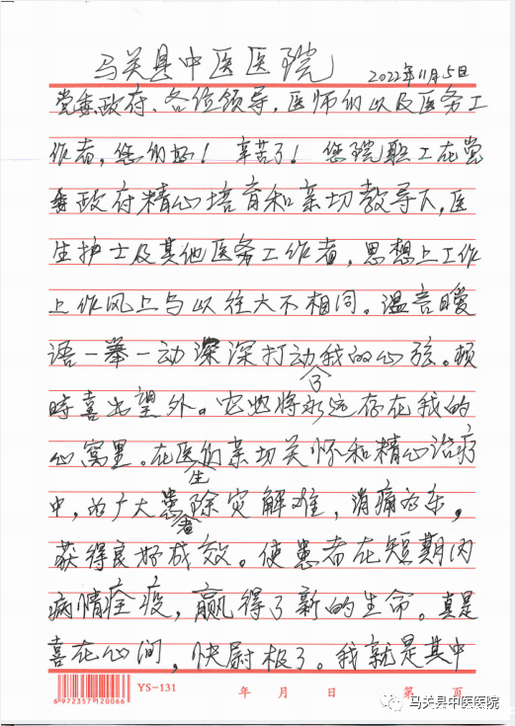 马关县中医医院 2022年11月5日
党委政府、各位领导，医师们以及医务工
作者，您们好！辛苦了！您院职工在党
委政府精心培育和亲切教导下，医
生护士及其他医务工作者，思想上工作
上作风上与以往大不相同。温言暖
语一举一动深深打动了我的心弦。顿
时喜出望外。它也将永远存在我的
心窝里。在医生们亲切关怀和精心治疗
中，为广大患者除灾解难，消痛为乐，
获得良好成效。使患者在短期内
病情痊疫，赢得了新的生命。真是
喜在心间，快尉极了。我就是其中
6972357120066 YS-131 年 月 日 第 页
马关县中医医院